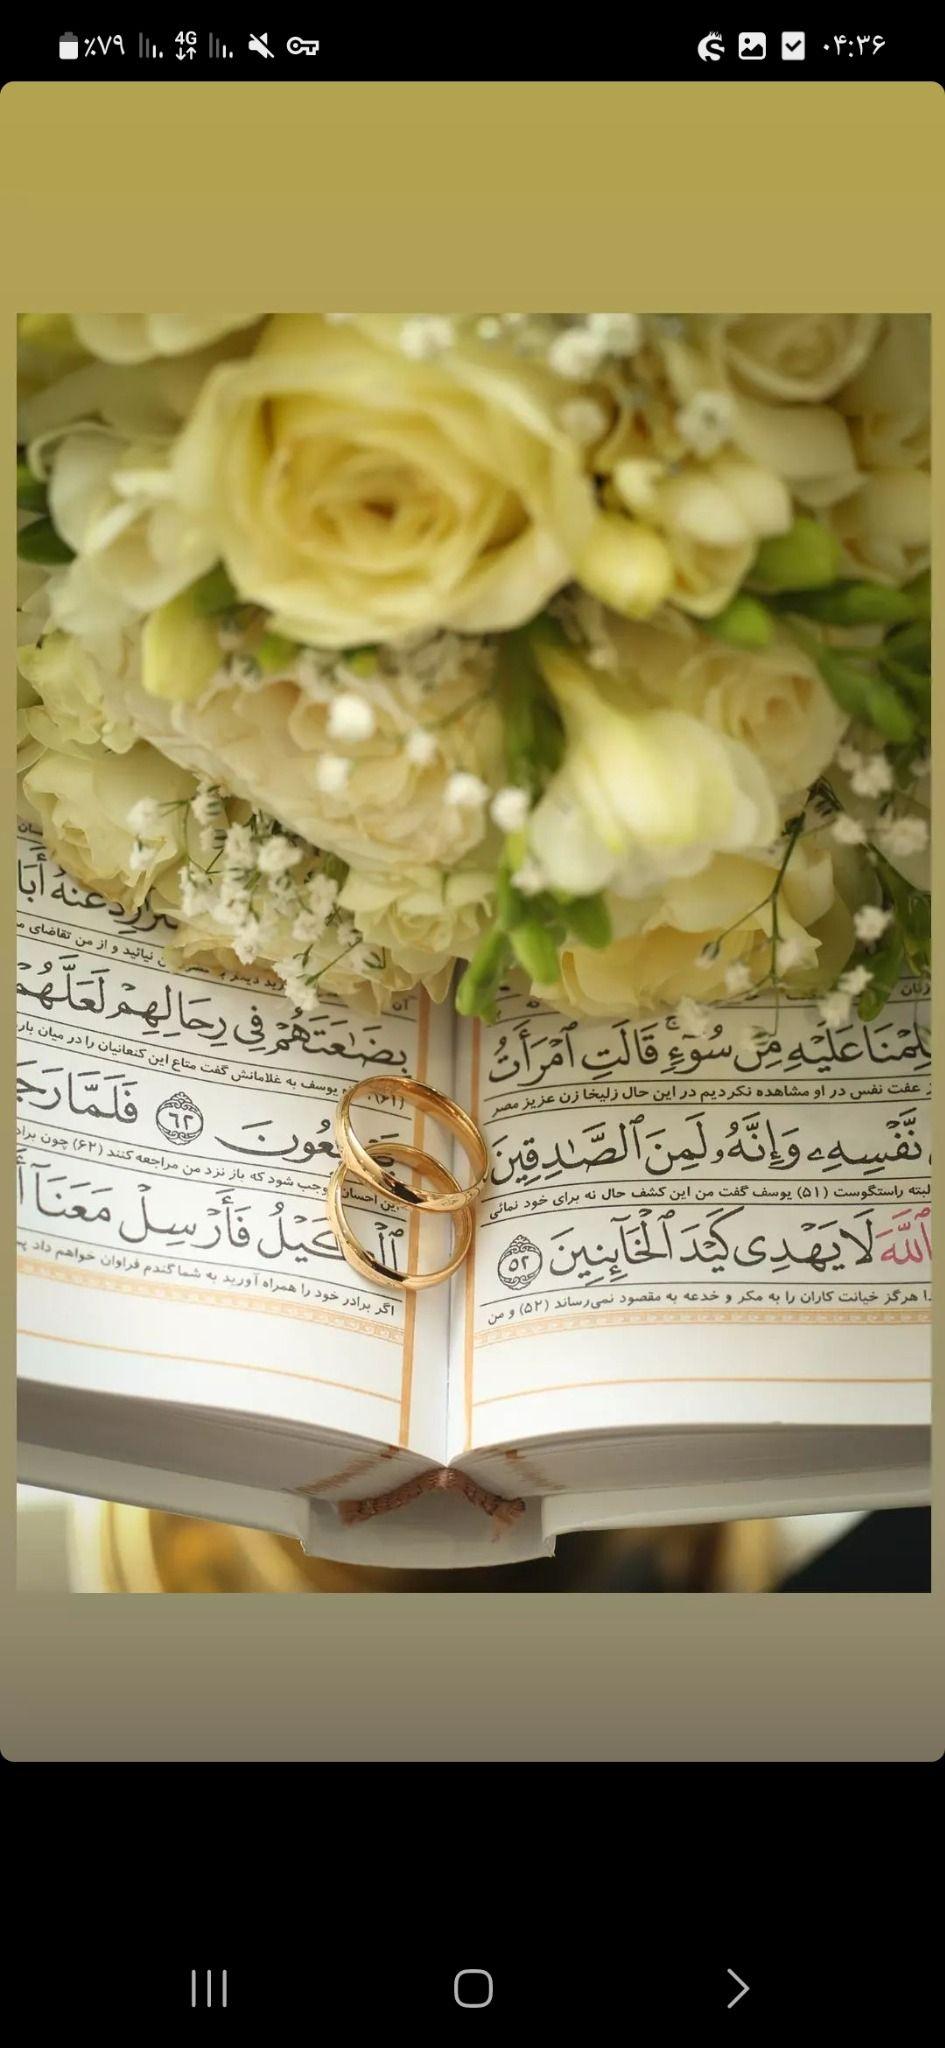 ٪۷۹ 4G ۰۴:۳۶
عَلَيْهِ مِن سُوٓءٍ ۚ قَالَتِ ٱمْرَأَتُ
عفت نفس در او مشاهده نکردیم در این حال زلیخا زن عزیز مصر
نَّفْسِهِۦ وَإِنَّهُۥ لَمِنَ ٱلصَّـٰدِقِينَ
البته راستگوست (۵۱) یوسف گفت من این کشف حال نه برای خود نمائی
ٱللَّهَ لَا يَهْدِى كَيْدَ ٱلْخَآئِنِينَ ۵۲
هرگز خیانت کاران را به مکر و خدعه به مقصود نمی‌رساند (۵۲) و من
عَنْهُ
نیائید و از من تقاضای
بِضَـٰعَتَهُمْ فِى رِحَالِهِمْ لَعَلَّهُمْ
(۶۱) یوسف به غلامانش گفت متاع این کنعانیان را در میان
۶۲ فَلَمَّا
این احسان موجب شود که باز نزد من مراجعه کنند (۶۲) چون
ٱلْكَيْلُ فَأَرْسِلْ مَعَنَآ
اگر برادر خود را همراه آورید به شما گندم فراوان خواهم داد